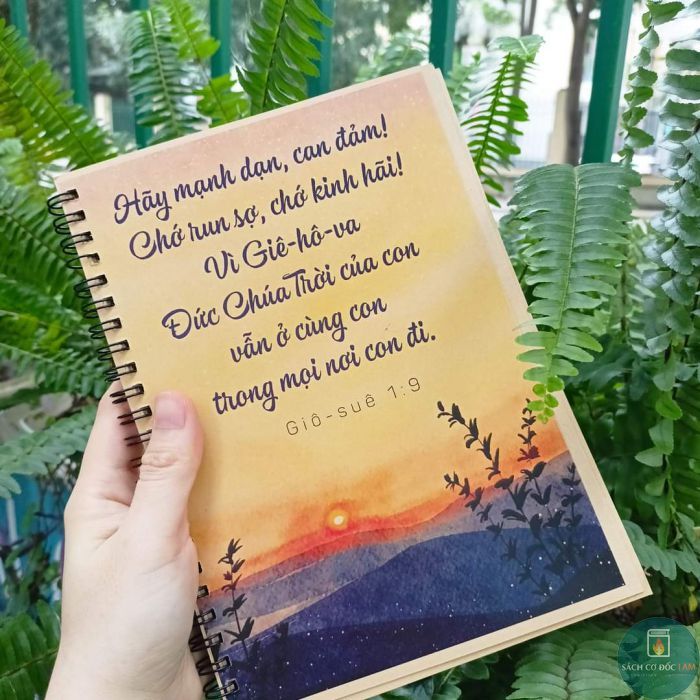 Hãy mạnh dạn, can đảm!
Chớ run sợ, chớ kinh hãi!
Vì Giê-hô-va
Đức Chúa Trời của con
vẫn ở cùng con
trong mọi nơi con đi.
Giô-suê 1:9
SÁCH CƠ ĐỐC I AM